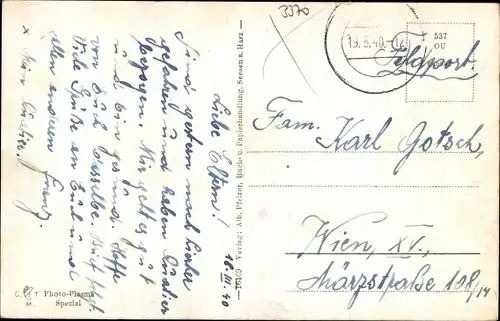 3370
18.III.40
Liebe Eltern!
Sind gestern nach hierher
gefahren und haben Quartier
bezogen. Mir geht es gut
und bin gesund. Hoffe
von Euch dasselbe.
Viele Grüße an Euch und
allen anderen Franz.
x Mein Quartier.
C. T. M.
Photo-Plasma
Spezial
— 10469 Verlag: Alb. Pfeizer, Buch- u. Papierhandlung, Seesen a. Harz —
19.3.40.-12
537
OU
Feldpost.
Fam. Karl Gotsch,
Wien, XV.,
Märzstraße 108/14